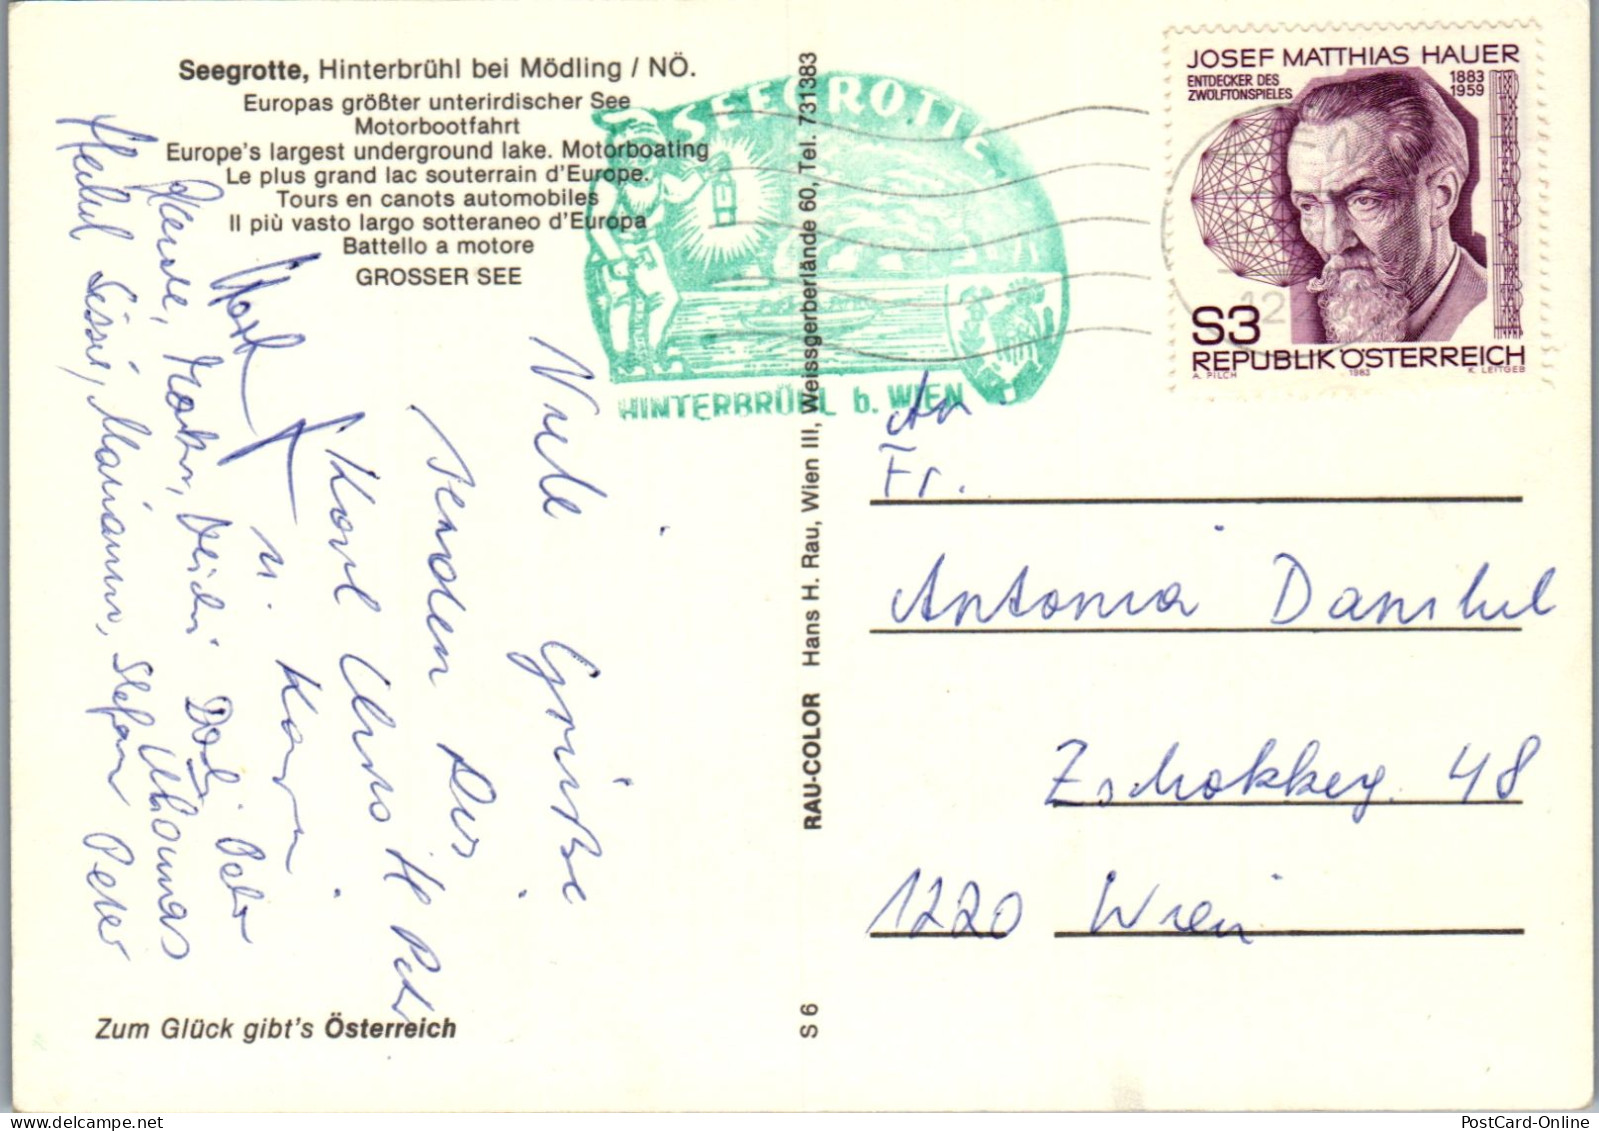 Seegrotte, Hinterbrühl bei Mödling / NÖ.
Europas größter unterirdischer See
Motorbootfahrt
Europe's largest underground lake. Motorboating
Le plus grand lac souterrain d'Europe.
Tours en canots automobiles
Il più vasto largo sotteraneo d'Europa
Battello a motore
GROSSER SEE
SEEGROTTE
HINTERBRÜHL b. WIEN
JOSEF MATTHIAS HAUER
ENTDECKER DES
ZWÖLFTONSPIELES
1883
1959
S3
REPUBLIK ÖSTERREICH
A. PILCH
1983
K. LEITGEB
Viele Grüße
senden Dir
Karl Peter
u. Karin
Heidi Dodi Peter
Thomas
Sissi, Marianne, Stefan Peter
Zum Glück gibt's Österreich
RAU-COLOR Hans H. Rau, Wien III, Weissgerberlände 60, Tel. 731383
S 6
An
Fr.
Antonia
Zschokkeg. 48
1220 Wien
PostCard-Online